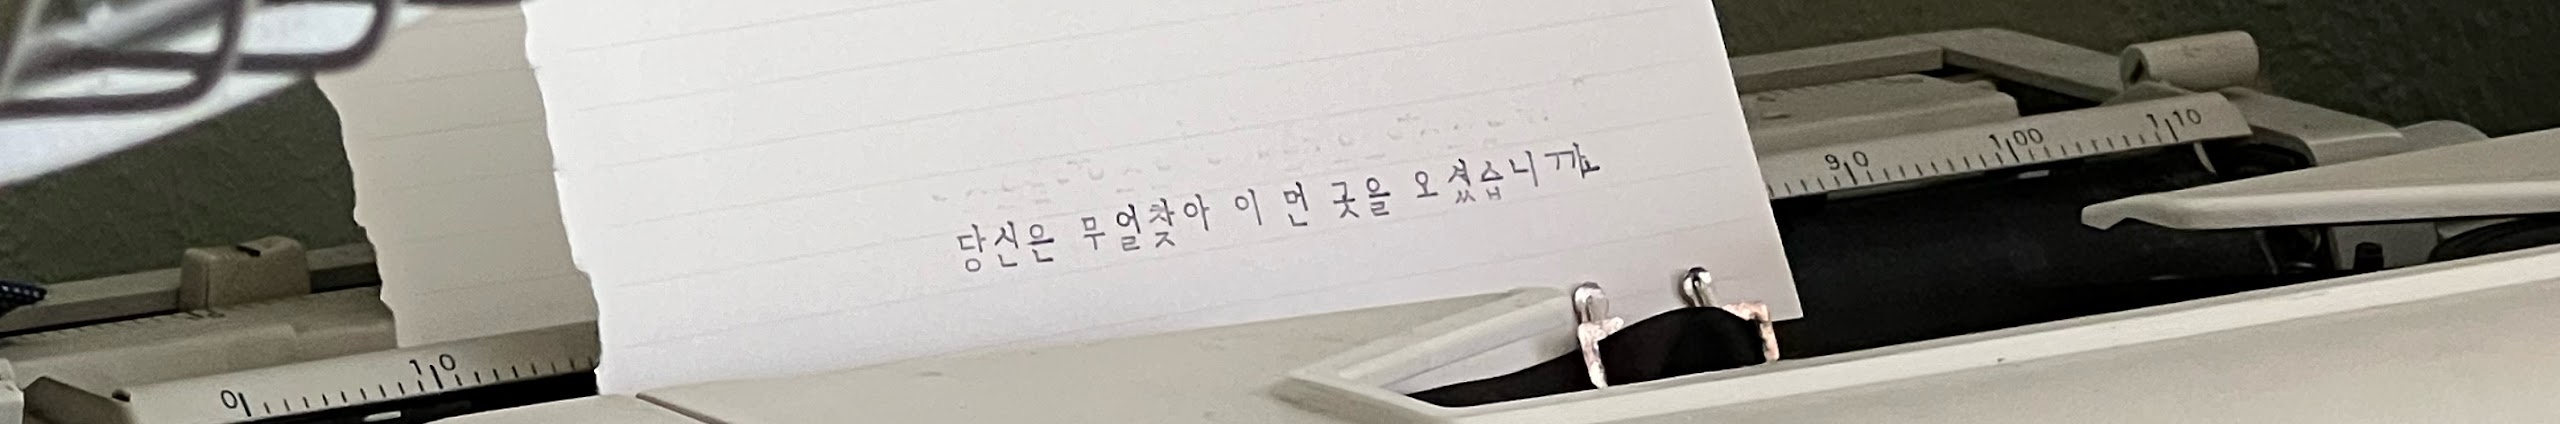 당신은 무얼찾아 이 먼 곳을 오셨습니까
0 10
90 100 110